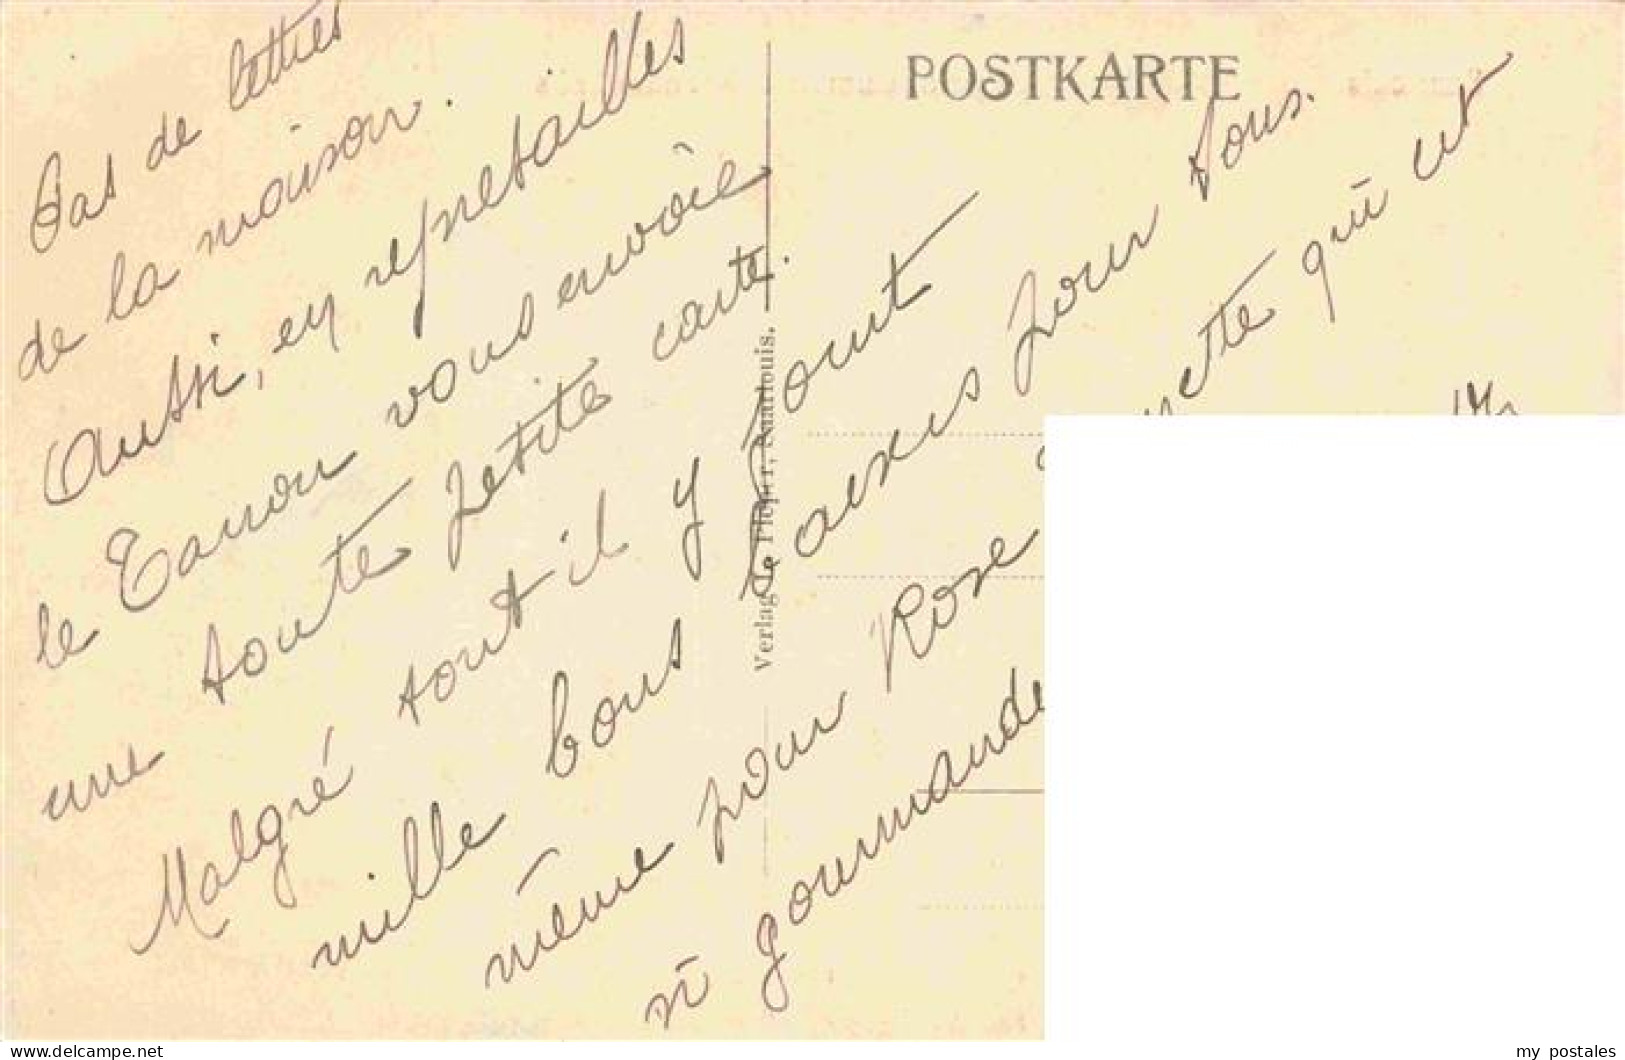 POSTKARTE
Pas de lettres
de la maison.
Aussi, en représailles
le vous envoie
une toute petite carte.
Malgré tout il y ont
mille bons baisers pour tous.
même pour Rose qui est
si gourmande
Verlag de Saarlouis.
my postales